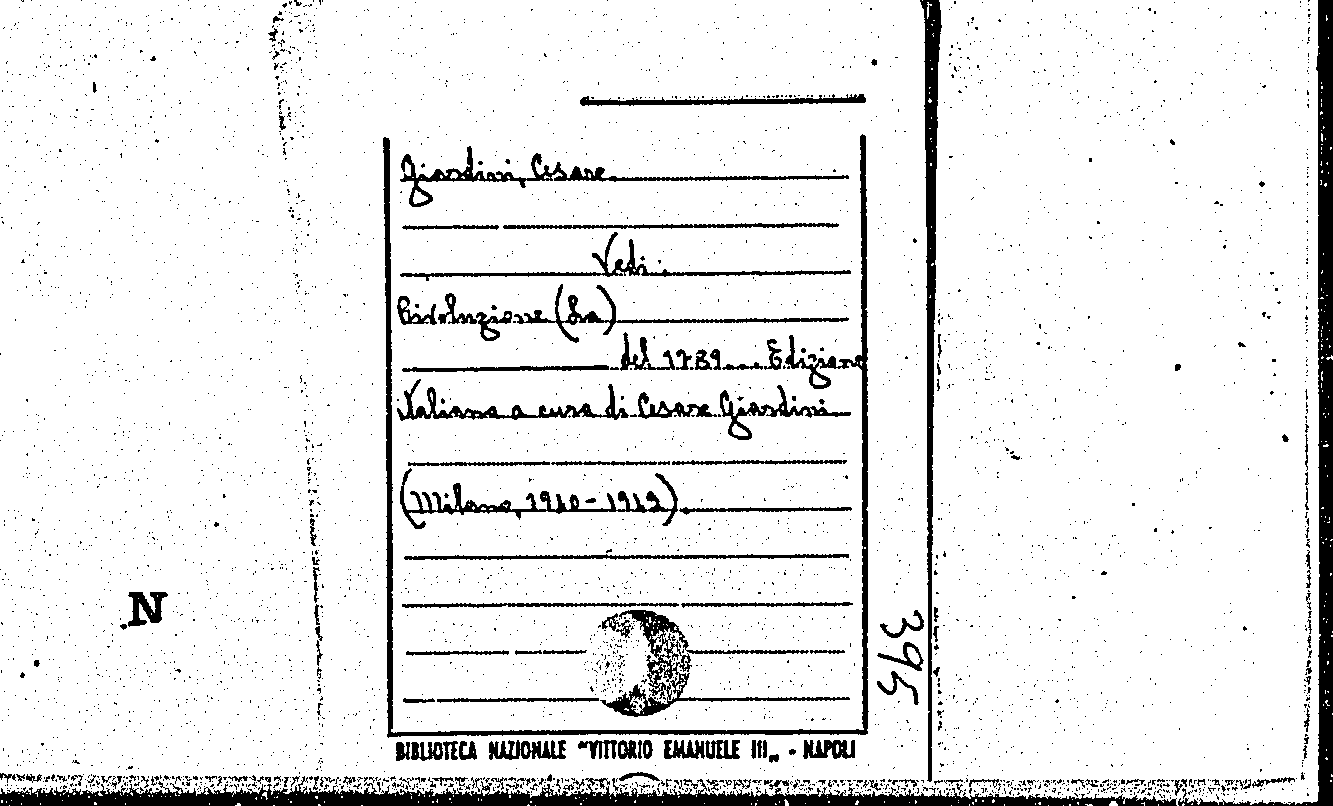 Giardini, Cesare.
Vedi:
Rivoluzione (La)
del 1789... Edizione
italiana a cura di Cesare Giardini
(Milano, 1940-1942).
395
N
BIBLIOTECA NAZIONALE "VITTORIO EMANUELE III„ - NAPOLI